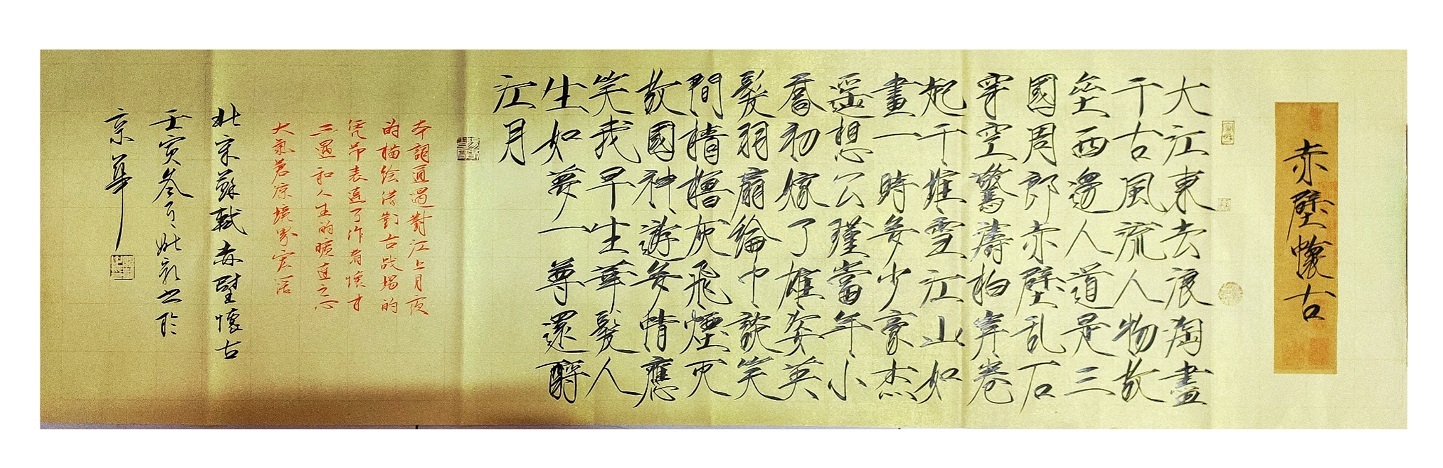 赤壁懷古
大江東去浪淘盡
千古風流人物故
壘西邊人道是三
國周郎赤壁乱石
穿空驚濤拍岸卷
起千堆雪江山如
畫一時多少豪杰
遥想公瑾當年小
喬初嫁了雄姿英
髮羽扇綸巾談笑
間檣櫓灰飛煙灭
故國神游多情應
笑我早生華髮人
生如夢一尊還酹
江月
本詞通過對江上月夜
的描绘借對古战場的
凭吊表達了作者懷才
不遇和人生的曠達之心
大氣蒼凉境界宏
北宋蘇軾赤壁懷古
壬寅叁月书於
京華